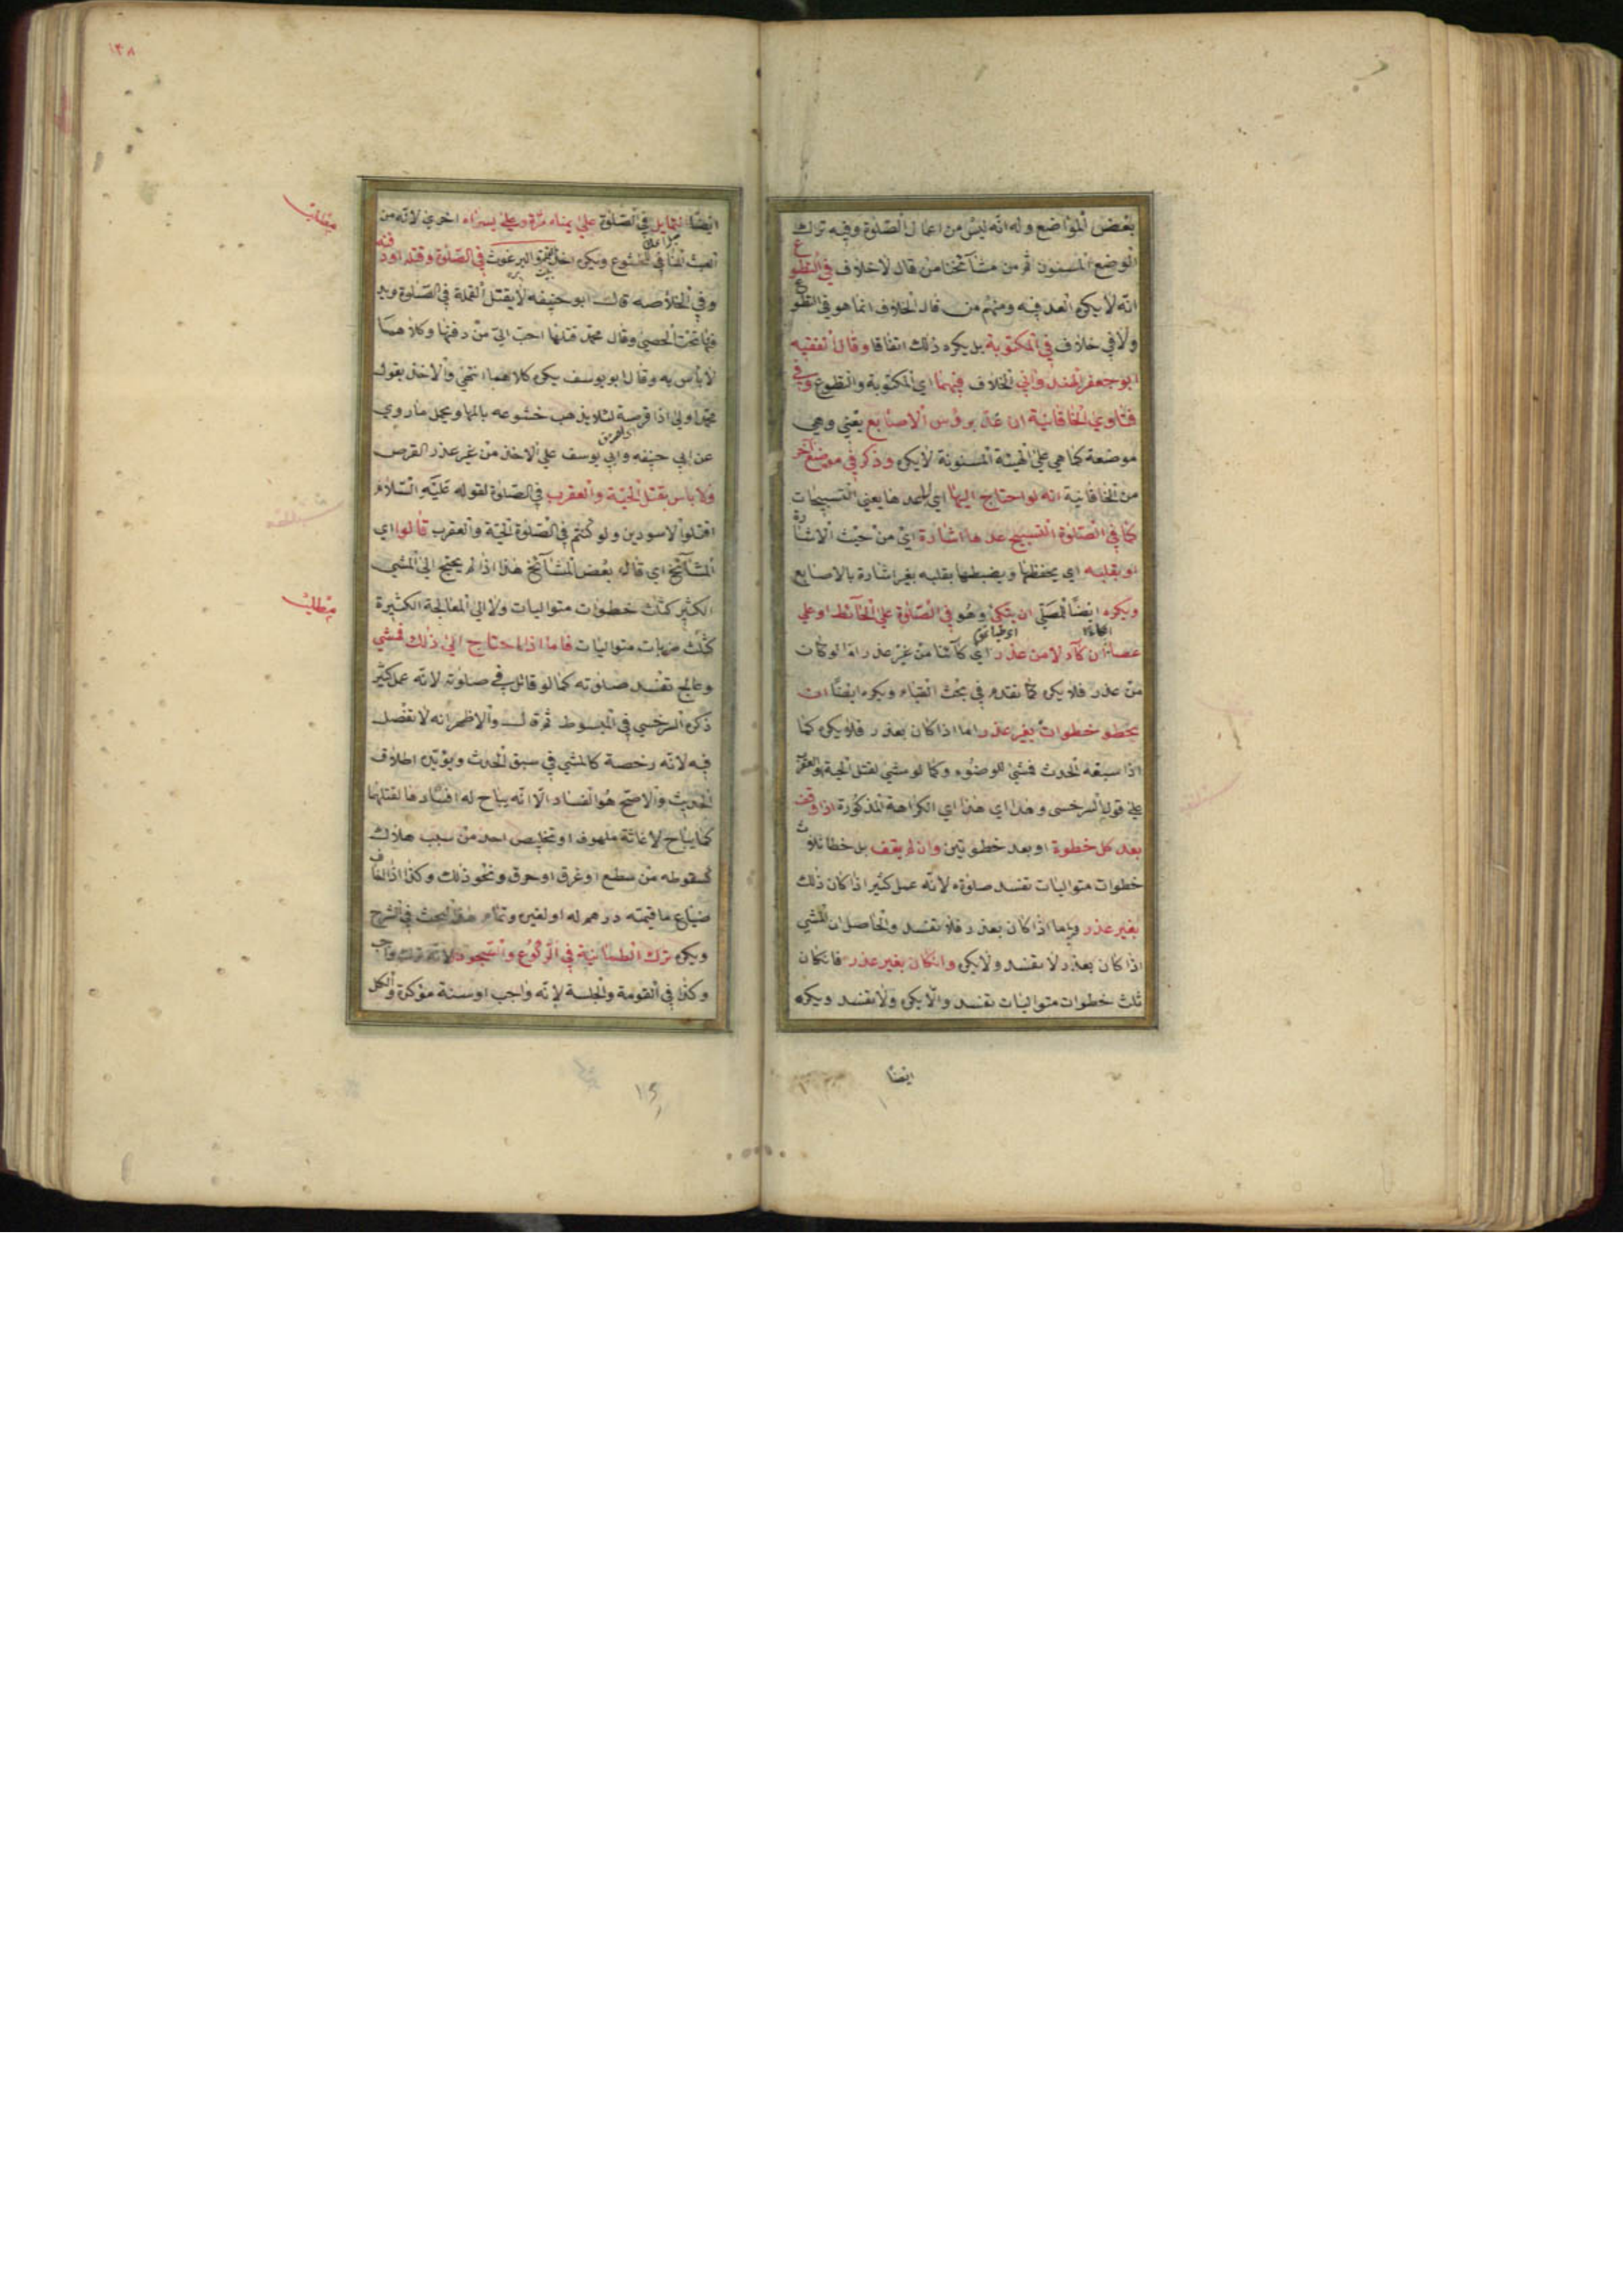 بعض المواضع وله انه ليس من اعمال الصلوة وفيه ترك
الوضع المسنون ثم من مشآئخنا من قال لا خلاف في التطوع
انه لا يكره العد فيه ومنهم من قال الخلاف انما هو في التطوع
ولا في خلاف في المكتوبة بل يكره ذلك اتفاقا وقال الفقيه
ابو جعفر الهندواني الخلاف فيهما اي المكتوبة والتطوع وفي
فتاوي الخاقانية ان عد برؤس الاصابع يعني وهي
موضعة كما هي على الهيئة المسنونة لا يكره وذكر في موضع آخر
من الخاقانية انه لو احتاج اليها اي لعدها يعني التسبيحات
كما في الصلوة التسبيح عدها اشارة اي من حيث الاشارة
او بقلبه اي يحفظها ويضبطها بقلبه بغير اشارة بالاصابع
ويكره ايضا للمصلي ان يتكئ وهو في الصلوة على الحآئط او على
عصا ان كآء لا من عذر اي كآئنا من غير عذر اما لو كان
من عذر فلا يكره كما تقدم في بحث القيام ويكره ايضا ان
يخطو خطوات بغير عذر اما اذا كان بعذر فلا يكره كما
اذا سبقه الحدث فمشى للوضوء وكما لو مشى لقتل الحية والعقرب
على قول السرخسي وهذا اي هذا اي الكراهة المذكورة اذا وقف
بعد كل خطوة او بعد خطوتين وان لم يقف بل خطا ثلاث
خطوات متواليات تفسد صلوته لانه عمل كثير اذا كان ذلك
بغير عذر واما اذا كان بعذر فلا تفسد والحاصل ان المشي
اذا كان بعذر لا تفسد ولا يكره وان كان بغير عذر فان كان
ثلث خطوات متواليات تفسد والا يكره ولا تفسد ويكره
ايضا
١٣٨
ايضا التمايل في الصلوة على يمناه مرة وعلى يسراه اخرى لانه من
العبث المنافي للخشوع ويكره اخذ القمل والبرغوث في الصلوة وقتله او دفنه
وفي الخلاصه قال ابو حنيفه لا يقتل القملة في الصلوة
تحت الحصى وقال محمد قتلها احب الي من دفنها وكلاهما
لا بأس به وقال ابو يوسف يكره كلاهما انتهى والاخذ بقول
محمد اولى اذا قرصه لئلا يذهب خشوعه بالمها ويحمل ما روي
عن ابي حنيفه وابي يوسف على الاخذ من غير عذر القرص
ولا باس بقتل الحية والعقرب في الصلوة لقوله عليه السلام
اقتلوا الاسودين ولو كنتم في الصلوة الحية والعقرب قالوا اي
المشآئخ اي قال بعض المشآئخ هذا اذا لم يحتج الى المشي
الكثير كثلث خطوات متواليات ولا الى المعالجة الكثيرة
كثلث ضربات متواليات فاما اذا احتاج الى ذلك فمشى
وعالج تفسد صلوته كما لو قاتل في صلوته لانه عمل كثير
ذكره السرخسي في المبسوط ثم قال والاظهر انه لا تفصل
فيه لانه رخصة كالمشي في سبق الحدث ويؤيده اطلاق
الحديث والاصح هو الفساد الا انه يباح له افسادها لقتلهما
كما يباح لاغاثة ملهوف او تخليص احد من سبب هلاك
كسقوطه من سطح او غرق او حرق ونحو ذلك وكذا اذا خاف
ضياع ما قيمته درهم له او لغيره وتمام هذا البحث في الشرح
ويكره ترك الطمانينة في الركوع والسجود لانه ترك واجب
وكذا في القومة والجلسة لانه واجب او سنة مؤكدة والكل
مطلب
مطلب